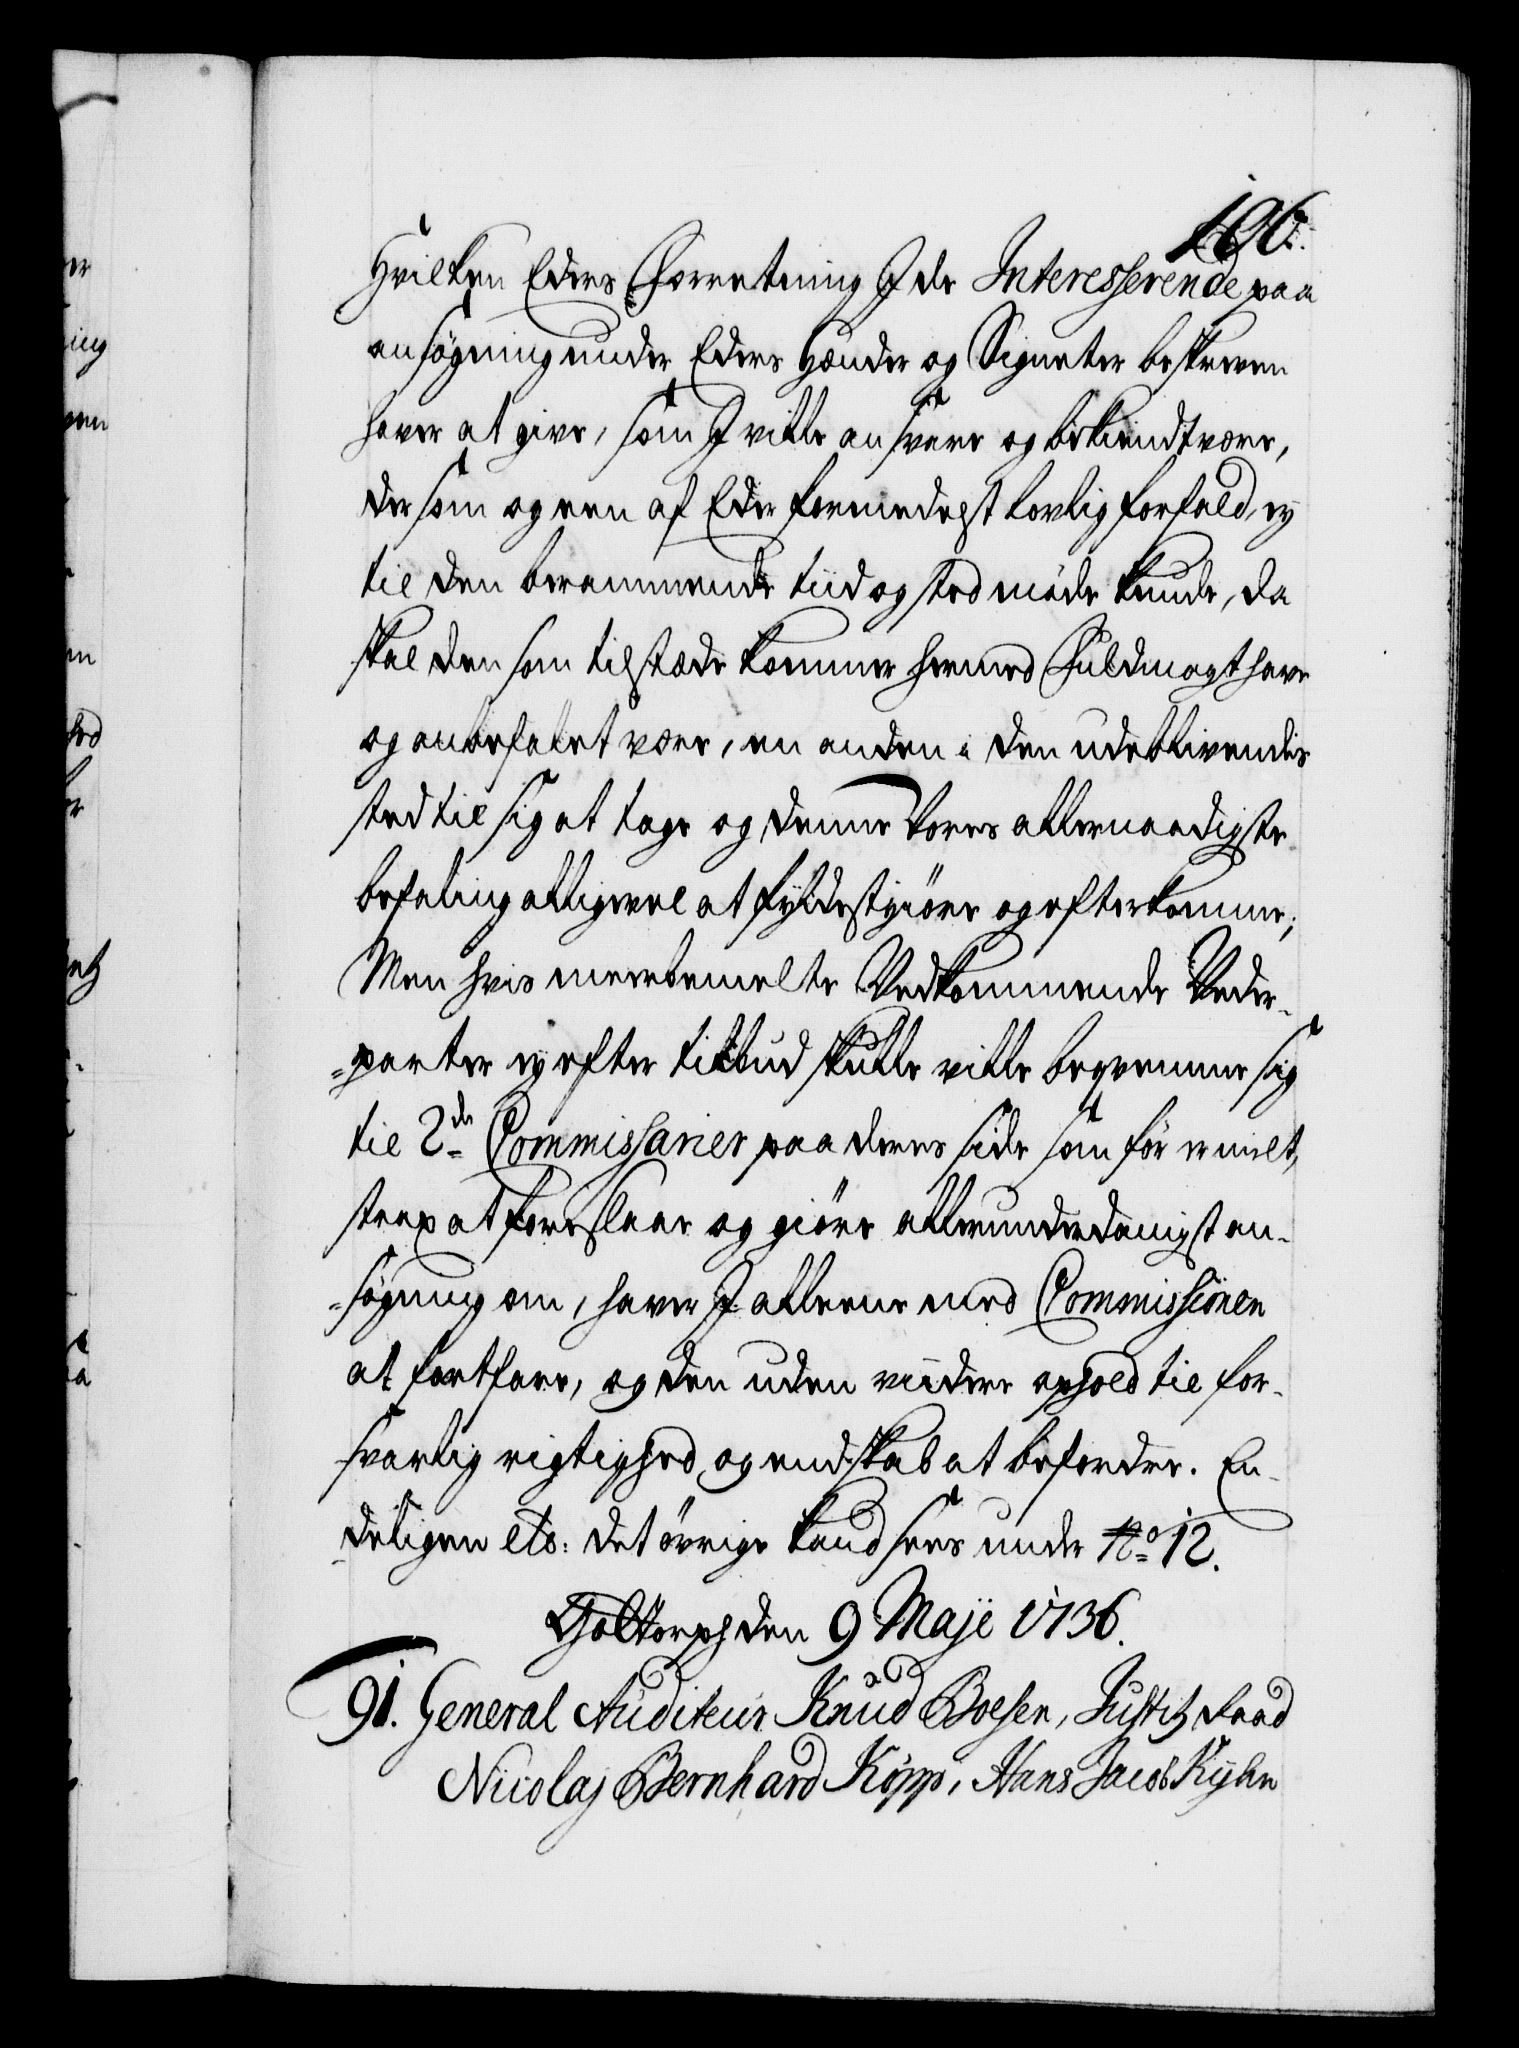 106.
Hvilken Eders Forretning I de Interesserende paa
ansøgning under Eders Hænder og Signeter beskreven
haver at give, som I ville ansvare og bekiendt være,
der som og een af Eder formedelst lovlig forfald, ey
til den berammende tiid og sted møde kunde, da
skal den som tilstæde kommer hermed Fuldmagt have
og anbefalet være, en anden i den udeblivendis
sted til sig at tage og denne Vores allernaadigste
befaling alligevel at fyldestgiøre og efterkomme;
Men hvis meerbemelte Vedkommende Veder-
=parter ey efter tilbud skulle ville beqvemme sig
til 2de Commissarier paa deres side som før er melt,
strax at foreslaae og giøre allerunderdanigst an-
=søgning om, haver I alleene med Commissionen
at fortfare, og den uden viidere ophold til for-
svarlig rigtighed og endskab at befordre. En-
deligen etc: det øvrige kand sees under No 12.
Gottorph den 9 Maji 1736.
91. General Auditeur Knud Boesen, Justitz Raad
Nicolaj Bernhard Köpp, Hans Jacob Kyhn